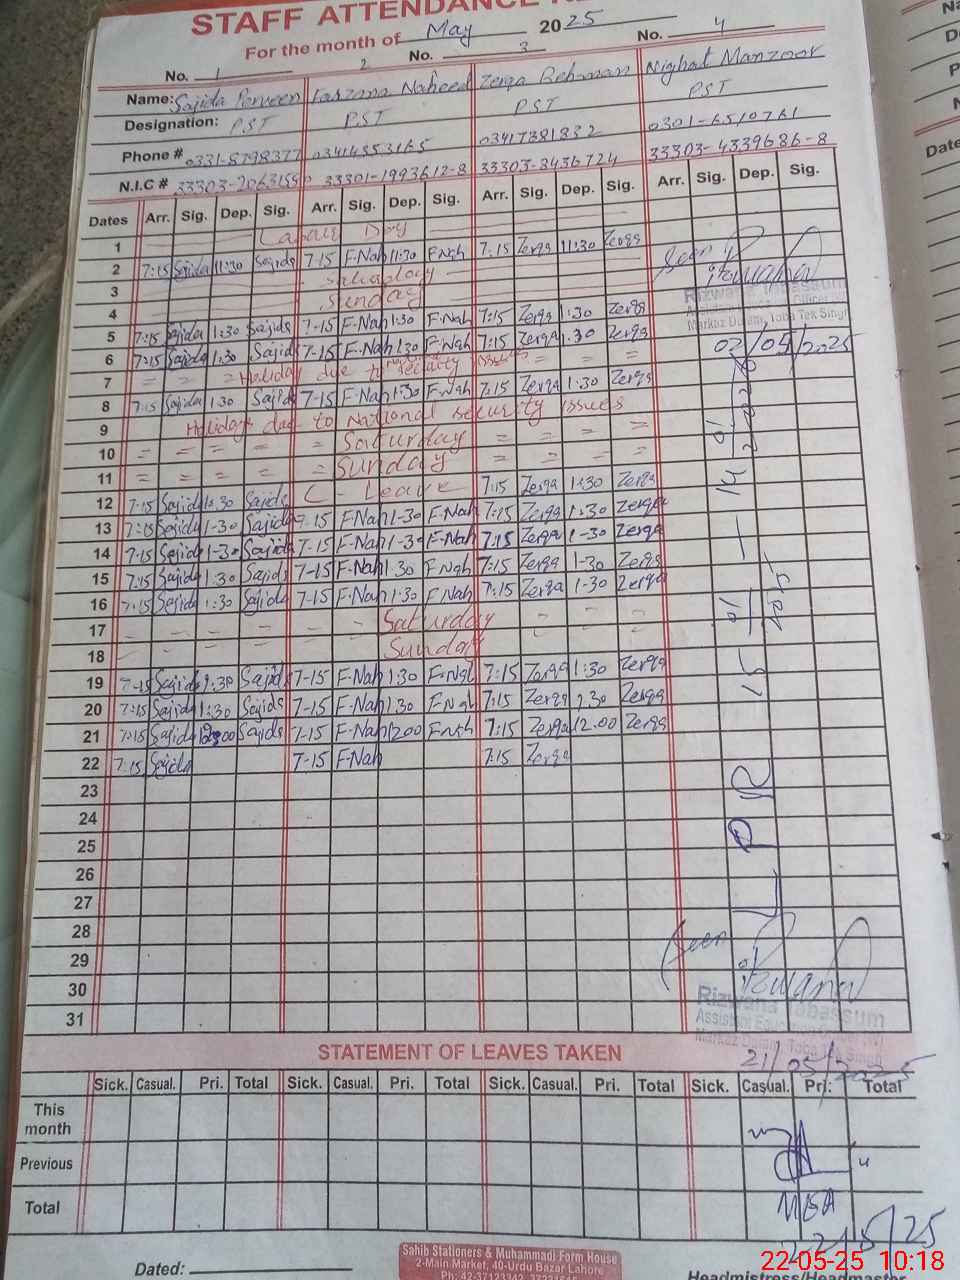 STAFF ATTENDANCE
For the month of May 2025
No. 1 2 No. 3 No. 4
Name: Sajida Perveen Farzana Naheed Zerqa Rehman Nighat Manzoor
Designation: P.S.T P.S.T P.S.T P.S.T
Phone # 0331-8798377 03414353165 03417381832 0301-6510761
N.I.C # 33301-1993612-8 33303-8436724 33303-4339686-8
Dates Arr. Sig. Dep. Sig. Arr. Sig. Dep. Sig. Arr. Sig. Dep. Sig. Arr. Sig. Dep. Sig.
1 Labour Day
2 7:15 Sajida 11:30 Sajida 7-15 F-Nah 11:30 F-Nah 7:15 Zerqa 11:30 Zerqa Seen
3 Saturday
4 Sunday
5 7:15 Sajida 1:30 Sajida 7-15 F-Nah 1:30 F-Nah 7:15 Zerqa 1:30 Zerqa
6 7:15 Sajida 1:30 Sajida 7-15 F-Nah 1:30 F-Nah 7:15 Zerqa 1:30 Zerqa
7 = = = Holiday due to security issues = = =
8 7:15 Sajida 1:30 Sajida 7-15 F-Nah 1:30 F-Nah 7:15 Zerqa 1:30 Zerqa
9 Holiday due to National security issues
10 = = = = = Saturday = = = =
11 = = = = = Sunday = = = =
12 7:15 Sajida 1:30 Sajida C - Leave 7:15 Zerqa 1:30 Zerqa
13 7:15 Sajida 1-30 Sajida 7-15 F-Nah 1-30 F-Nah 7:15 Zerqa 1:30 Zerqa
14 7:15 Sajida 1-30 Sajida 7-15 F-Nah 1-30 F-Nah 7:15 Zerqa 1-30 Zerqa
15 7:15 Sajida 1:30 Sajida 7-15 F-Nah 1:30 F-Nah 7:15 Zerqa 1-30 Zerqa
16 7:15 Sajida 1:30 Sajida 7-15 F-Nah 1:30 F-Nah 7:15 Zerqa 1-30 Zerqa
17 Saturday
18 Sunday
19 7-15 Sajida 1:30 Sajida 7-15 F-Nah 1:30 F-Nah 7:15 Zerqa 1:30 Zerqa
20 7:15 Sajida 1:30 Sajida 7-15 F-Nah 1:30 F-Nah 7:15 Zerqa 1:30 Zerqa
21 7:15 Sajida 12:00 Sajida 7-15 F-Nah 12:00 F-Nah 7:15 Zerqa 12:00 Zerqa
22 7:15 Sajida 7-15 F-Nah 7:15 Zerqa
23
24
25
26
27
28
29
30
31
Rizwana Tabassum
Assistant Education Officer (W)
Markaz Dalam, Toba Tek Singh
02/05/2025
L P R
Seen
Rizwana
Rizwana Tabassum
Assistant Education Officer (W)
Markaz Dalam, Toba Tek Singh
21/05/2025
STATEMENT OF LEAVES TAKEN
Sick. Casual. Pri. Total Sick. Casual. Pri. Total Sick. Casual. Pri. Total Sick. Casual. Pri. Total
This month
Previous
Total
MEA
22/5/25
Sahib Stationers & Muhammadi Form House
2-Main Market, 40-Urdu Bazar Lahore
Dated:
22-05-25 10:18